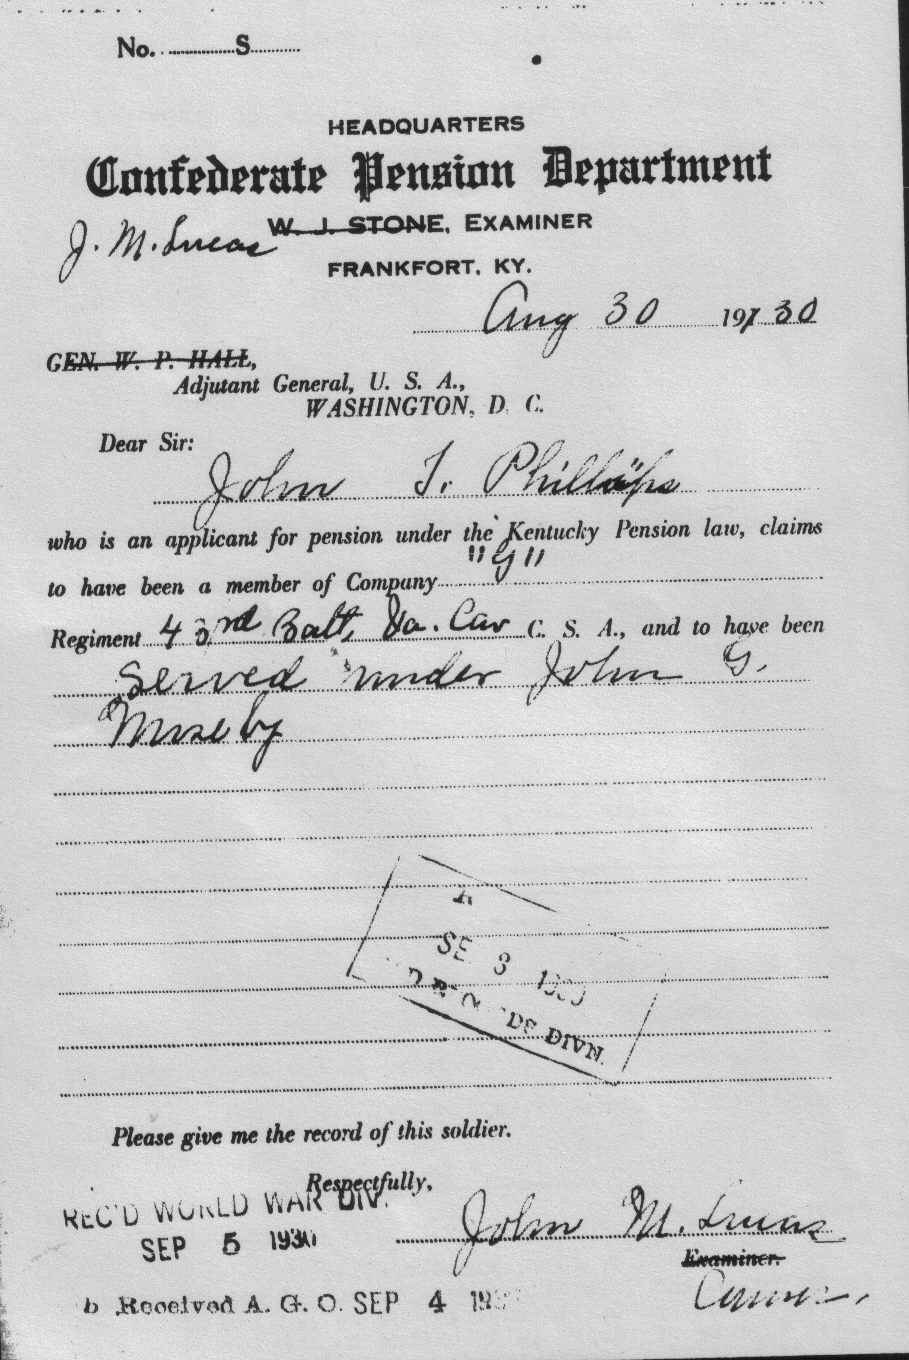 No. S
HEADQUARTERS
Confederate Pension Department
J. M. Lucas W. J. STONE, EXAMINER
FRANKFORT, KY.
Aug 30 1930
GEN. W. P. HALL,
Adjutant General, U. S. A.,
WASHINGTON, D. C.
Dear Sir:
John T. Phillips
who is an applicant for pension under the Kentucky Pension law, claims
to have been a member of Company "G"
Regiment 43rd Batt, Va. Cav C. S. A., and to have been
Served under John G.
Moseby
SE 3 1930
DIVN.
Please give me the record of this soldier.
Respectfully,
REC'D WORLD WAR DIV.
SEP 5 1930
John M. Lucas
Examiner.
Received A. G. O. SEP 4